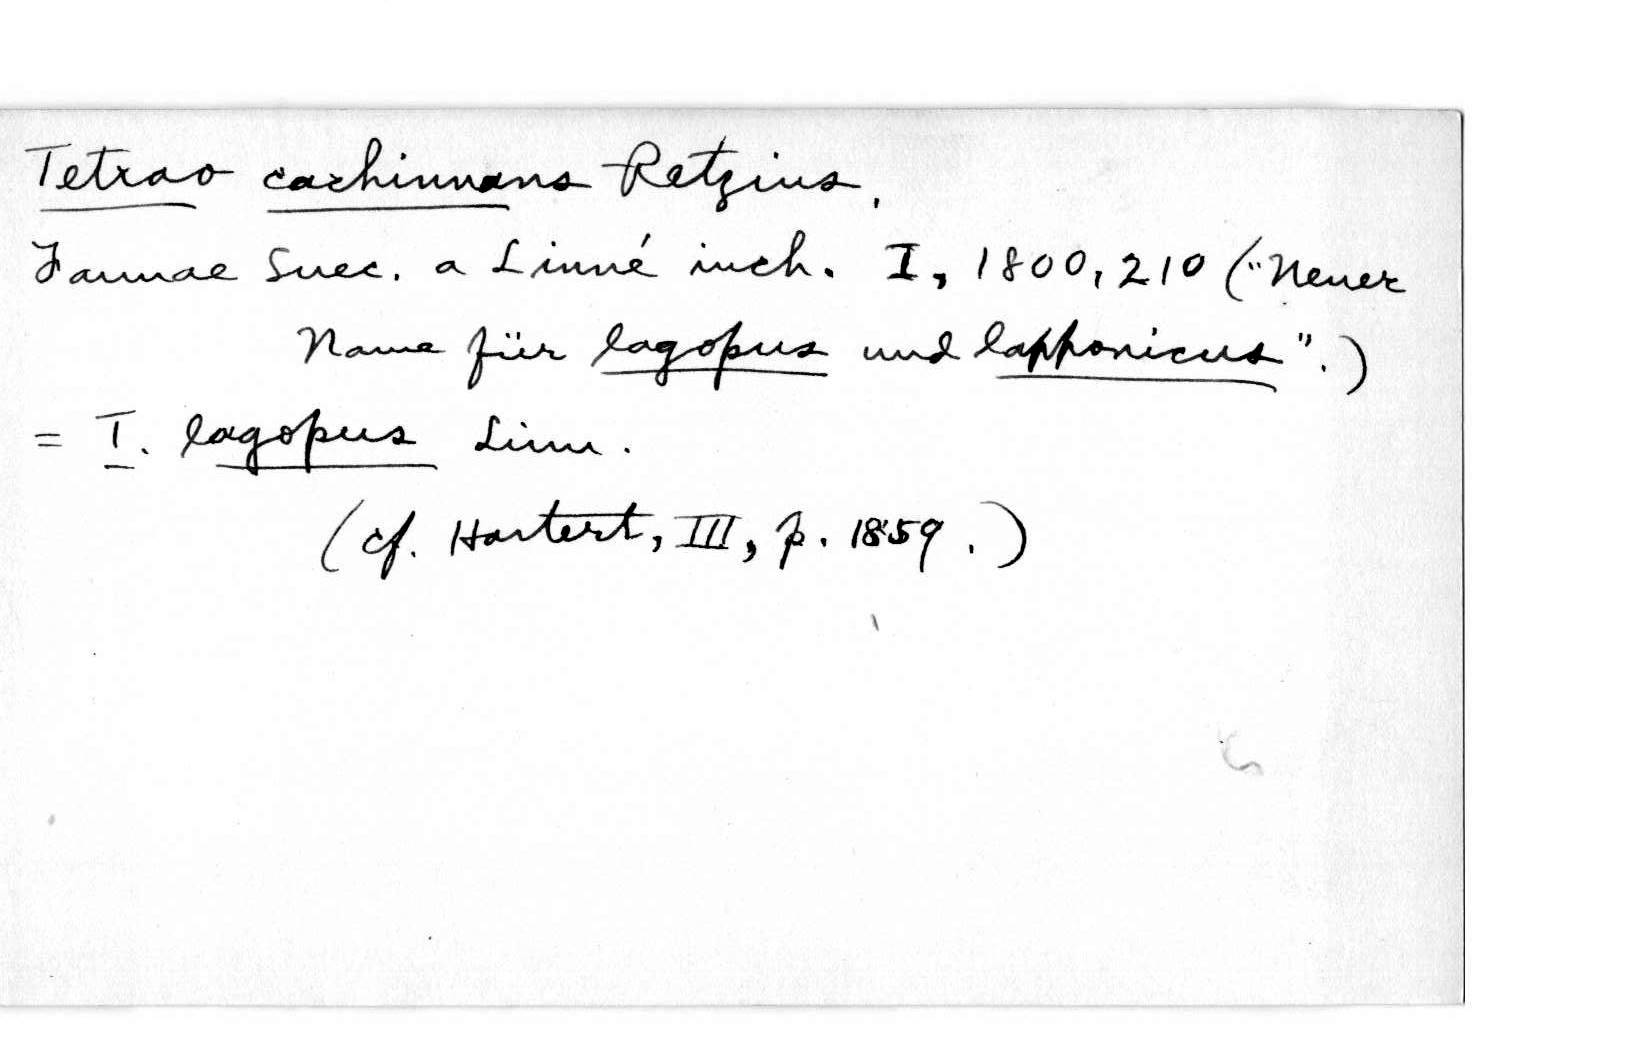 Tetrao cachinnans Retzius,
Faunae Suec. a Linné inch. I, 1800, 210 ("Neuer
Name für lagopus und lapponicus".)
= T. lagopus Linn.
(cf. Hartert, III, p. 1859.)